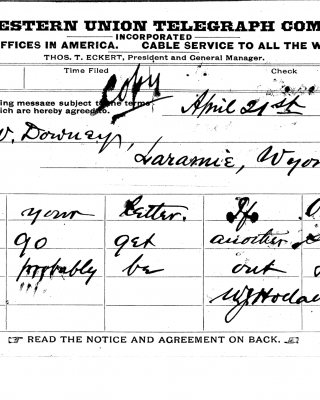 ESTERN UNION TELEGRAPH COM
INCORPORATED
OFFICES IN AMERICA. CABLE SERVICE TO ALL THE W
THOS. T. ECKERT, President and General Manager.
Time Filed Check
Copy
ing message subject to the terms
which are hereby agreed to.
April 21st
Downey,
Laramie, Wyo
your letter. If
go get another
probably be out
☞ READ THE NOTICE AND AGREEMENT ON BACK. ☜